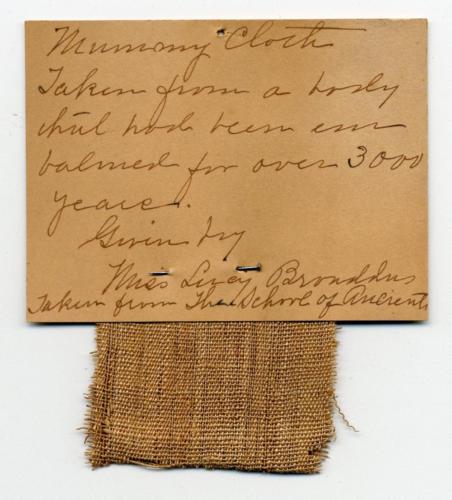 Mummy Cloth
Taken from a body
that had been em
balmed for over 3000
years.
Given by
Miss Lucy Broaddus
Taken from The School of Ancients